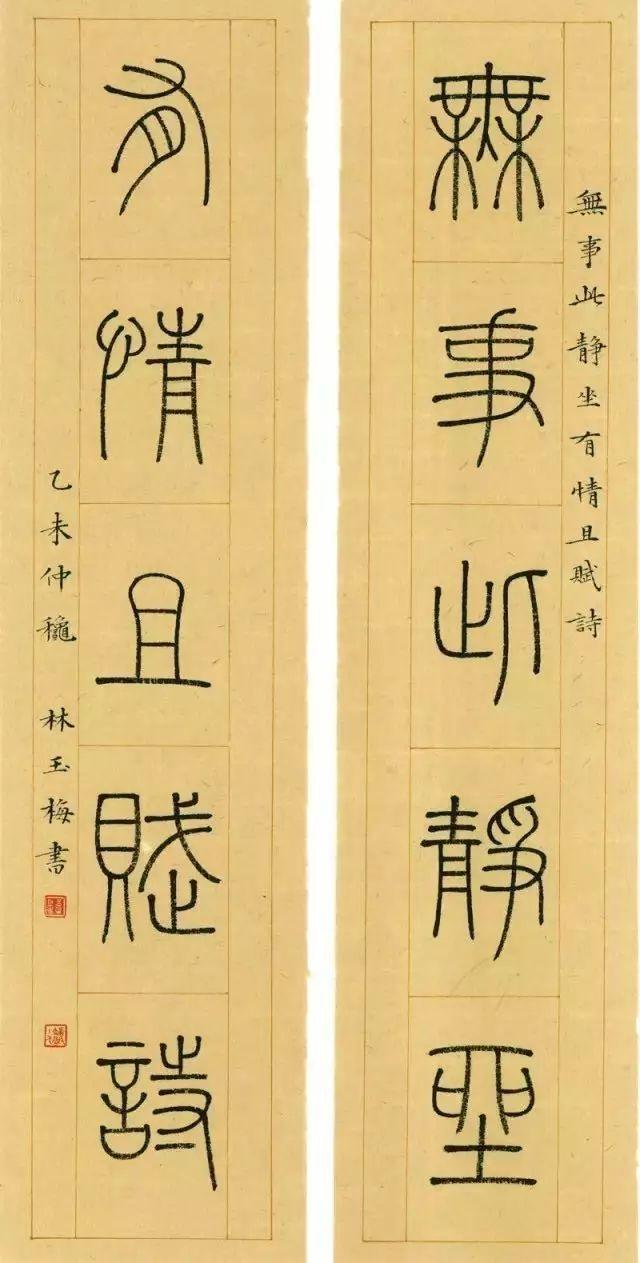 無事此靜坐
無事此靜坐有情且賦詩
有情且賦詩
乙未仲龝 林玉梅書